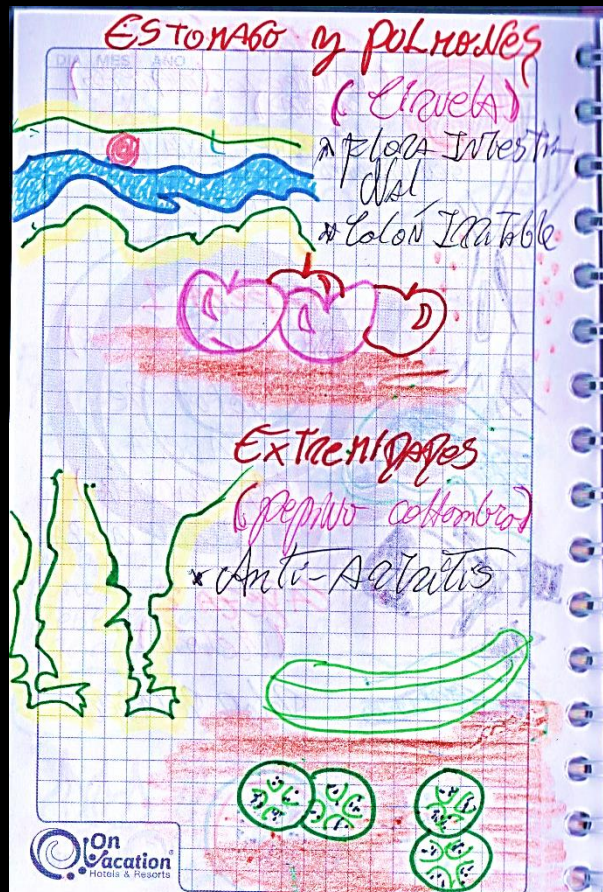 DIA MES AÑO
ESTOMAGO y PULMONES
(Ciruela)
* Flora Intesti
nal
* Colon Irritable
Extremidades
(pepino cohombro)
* Anti-Artritis
On
Vacation
Hotels & Resorts